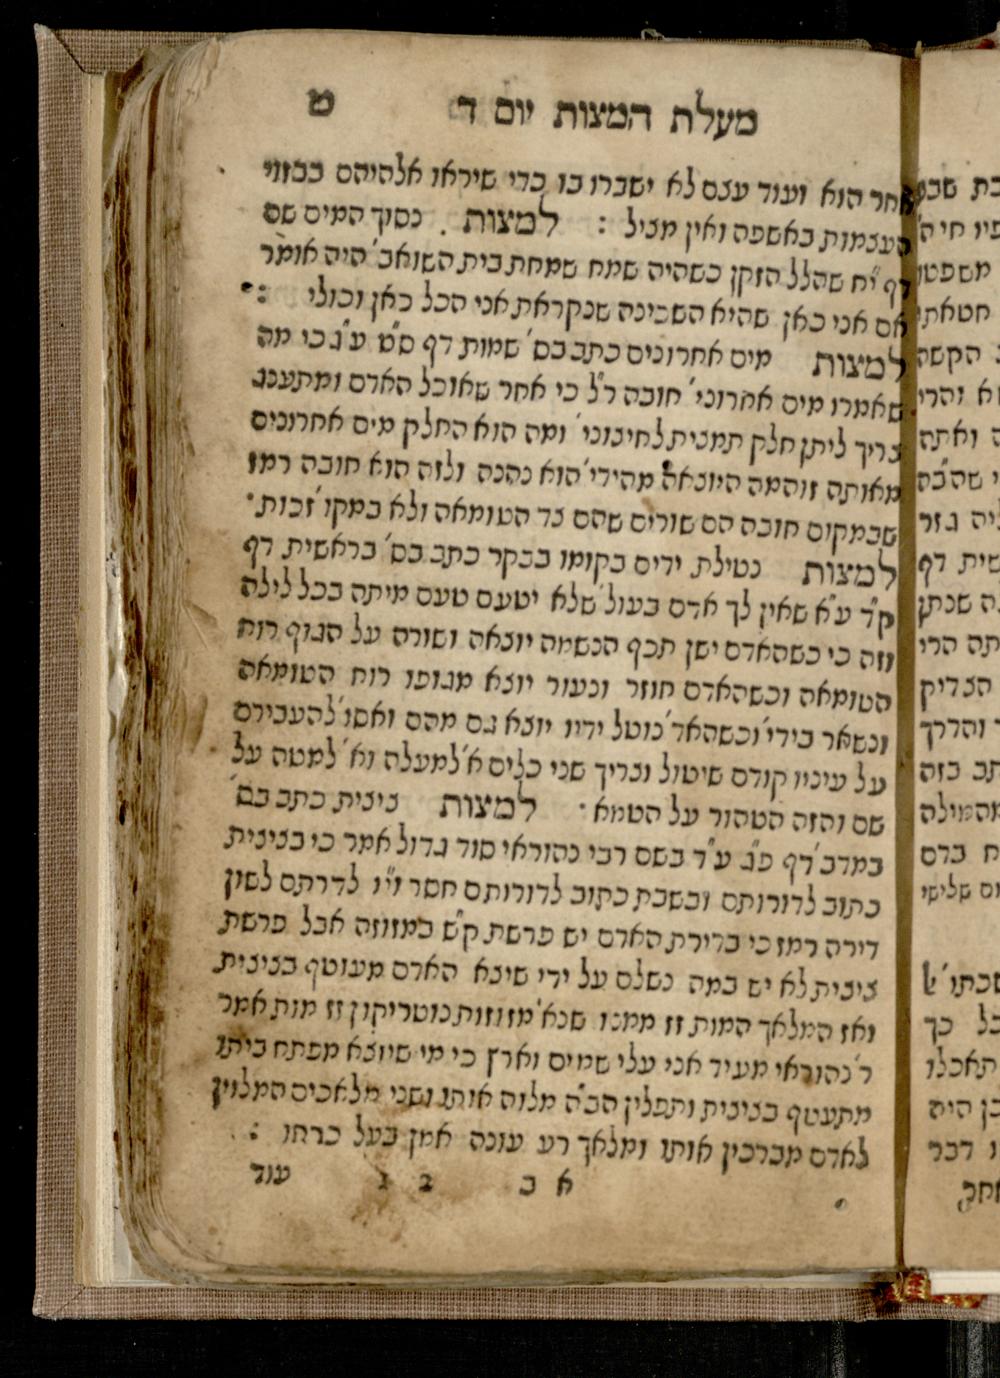 מעלת המצות יום ד ט
אחר הוא ועוד עצם לא ישברו בו כדי שיראו אלהיהם בבזוי
העצמות באשפה ואין מציל : למצות . נסוך המים שם
דף י״ח שהלל הזקן כשהיה שמח שמחת בית השואב׳ היה אומר
אם אני כאן שהיא השכינה שנקראת אני הכל כאן וכולי :
למצות מים אחרונים כתב בס׳ שמות דף ס״ט ע״ג כי מה
שאמרו מים אחרוני׳ חובה ר״ל כי אחר שאוכל האדם ומתענג
צריך ליתן חלק תמצית לחיצוני׳ ומה הוא החלק מים אחרונים
מאותה זוהמה היוצאה מהידי׳ הוא נהנה ולזה הוא חובה רמז
שבמקום חובה הם שורים שהם צד הטומאה ולא במקו׳ זכות .
למצות נטילת ידים בקומו בבקר כתב בס׳ בראשית דף
ק״ד ע״א שאין לך אדם בעול׳ שלא יטעם טעם מיתה בכל לילה
וזה כי כשהאדם ישן תכף הנשמה יוצאה ושורה על הגוף רוח
הטומאה וכשהאדם חוזר ונעור יוצא מגופו רוח הטומאה
ונשאר בידי׳ וכשהאד׳ נוטל ידיו יוצא גם מהם ואסו׳ להעבירם
על עיניו קודם שיטול וצריך שני כלים א׳ למעלה וא׳ למטה על
שם והזה הטהור על הטמא . למצות ציצית כתב בס׳
במדב׳ דף פ״ג ע״ד בשם רבי נהוראי סוד גדול אמר כי בציצית
כתוב לדורותם ובשבת כתוב לדורותם חסר וי״ו לדרתם לשון
דירה רמז כי בדירת האדם יש פרשת ק״ש במזוזה אבל פרשת
ציצית לא יש במה נשלם על ידי שיצא האדם מעוטף בציצית
ואז המלאך המות זז ממנו שנא׳ מזוזות נוטריקון זז מות אמר
ר׳ נהוראי מעיד אני עלי שמים וארץ כי מי שיוצא מפתח ביתו
מתעטף בציצית ותפלין הב״ה מלוה אותו ושני מלאכים המלוין
לאדם מברכין אותו ומלאך רע עונה אמן בעל כרחו :
א ב ב ג עוד